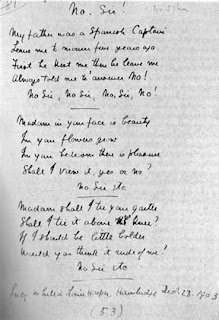 No. Sir!
My father was a Spanish Captain
Leave me to mourn five years ago
First he kiss me then he leave me
Always told me to answer No!
No Sir, No Sir, No, Sir, No!
Madam in your face is beauty
In your flowers grow
In your bedroom there is pleasure
Shall I view it, yes or no?
No Sir etc
Madam shall I tie your garter
Shall I tie it above the knee?
If I should be little bolder
Would you think it rude of me!
No Sir etc
Lucy White & Louie Hooper, Hambridge Dec 23. 1903
(53)